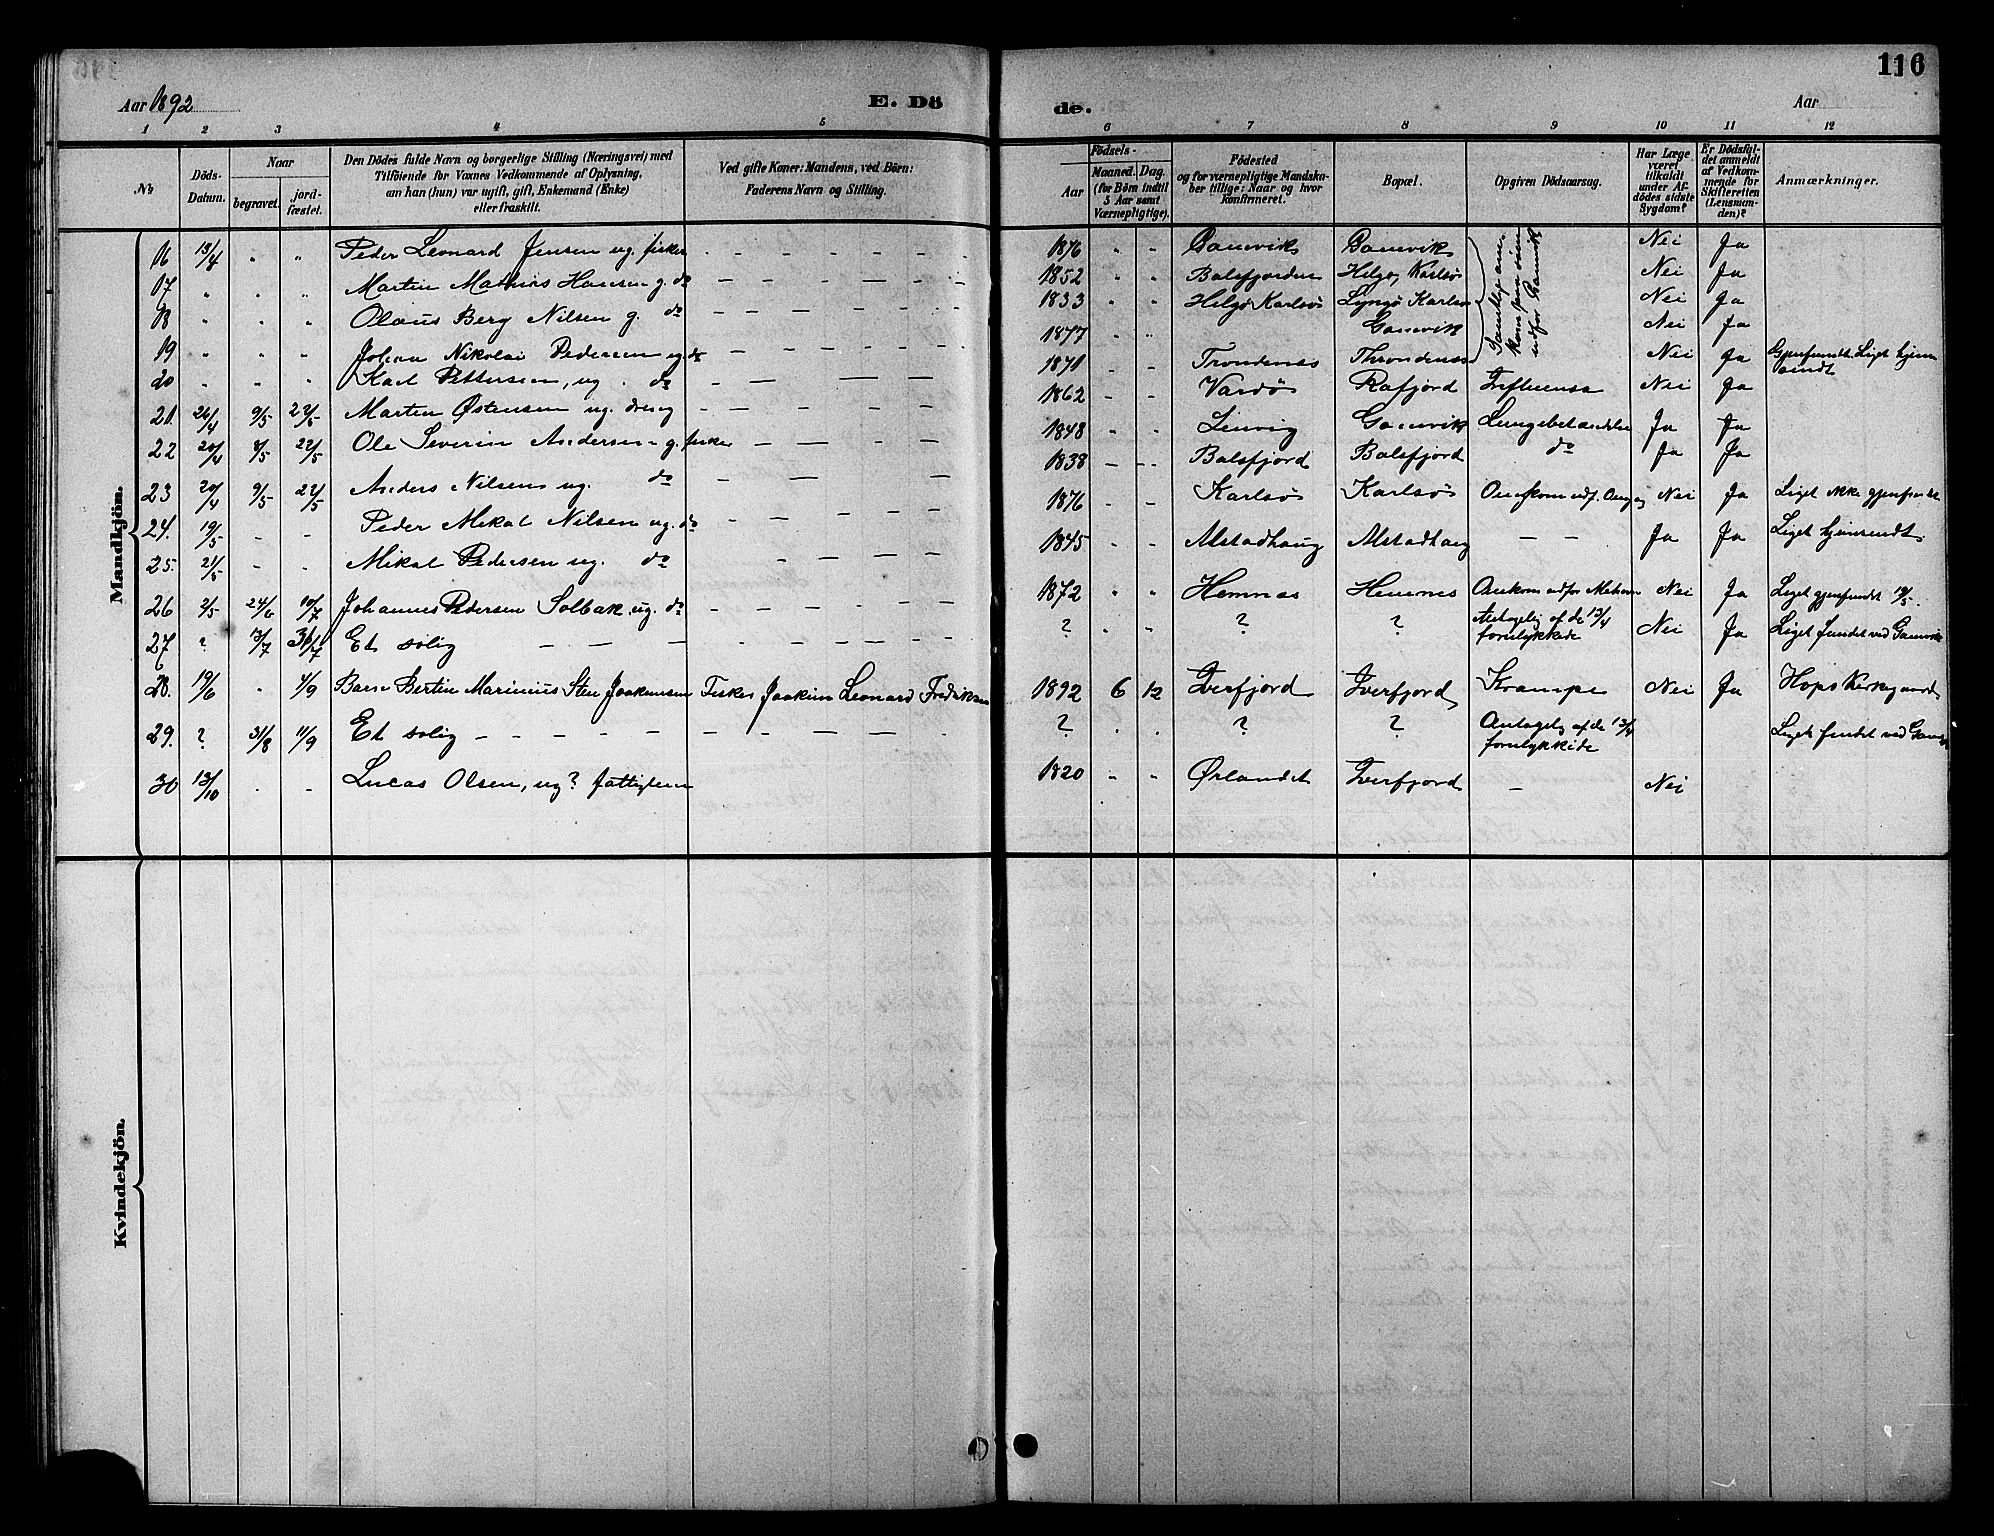 116
Aar 1892
E. Dö
de.
Aar
1 2 3 4 5 6 7 8 9 10 11 12
No
Döds-Datum.
Naar
begravet.
jord-fæstet.
Den Dödes fulde Navn og borgerlige Stilling (Næringsvei) med
Tilföiende for Voxnes Vedkommende af Oplysning,
om han (hun) var ugift, gift, Enkemand (Enke)
eller fraskilt.
Ved gifte Koner: Mandens, ved Börn:
Faderens Navn og Stilling.
Födsels-
Aar
Maaned. Dag.
(for Börn indtil
5 Aar samt
Værnepligtige).
Födested
og for værnepligtige Mandska-
ber tillige: Naar og hvor
konfirmeret.
Bopæl.
Opgiven Dödsaarsag.
Har Læge
været
tilkaldt
under Af-
dödes sidste
Sygdom?
Er Dödsfal-
det anmeldt
af Vedkom-
mende for
Skifteretten
(Lensman-
den)?
Anmærkninger.
Mandkjön.
16 13/4 " " Peder Leonard Jensen ug. fisker - - - 1876 " " Gamvik Gamvik Nei Ja
Samtlige om-
kom paa söen
udfor Gamvik
17 " " " Martin Mathias Hansen g. do - - - 1852 " " Balsfjorden Helgø, Karlsø Nei Ja
18 " " " Olaus Berg Nilsen g. do - - - 1833 " " Helgø Karlsø Lyngø Karlsø Nei Ja
19 " " " Johan Nikolai Pedersen ug. do - - - 1877 " " Gamvik Nei Ja
20 " " " Karl Pettersen, ug. do - - - Trondenes Throndenes Nei Ja Gjenfundt. Liget hjem-
sendt
21. 26/4 9/5 22/5 Martin Østensen ug. dreng - - - 1862 - - Vardø Rafjord Influensa Nei Ja
22 20/4 22/5 Ole Severin Andersen g. fisker - - - 1848 - - Lenvig Gamvik Lungebetændelse Ja Ja
23 20/4 9/5 22/5 Anders Nilsen ug. do - - - 1838 - - Balsfjord Balsfjord do Ja Ja
24. 19/5 - - Peder Mikal Nilsen ug. do - - - 1876 - - Karlsø Karlsø Omkom udf. Nei Ja Liget ikke gjenfundet
25. 21/5 - - Mikal Pedersen ug. do - - - 1845 " " Alstadhaug Alstadhaug - - Ja Ja Liget hjemsendt
26 2/5 24/6 10/7 Johannes Pedersen Solbak, ug. do - - - 1872 " " Hemnes Hemnes Omkom udfor Mehavn Nei Ja Liget gjenfundt
27 ? 13/7 31/7 Et sølig - - - ? " " ? ? Antagelig af de 13/4
forulykkede Nei Ja Liget fundet ved Gamvik
28. 19/6 " 4/9 Barn Bertin Marinius Sten Joakimsen Fisker Joakim Leonard Fredriksen 1892 6 12 Iversfjord Iversfjord Krampe Nei Ja Hops Kirkegaard
29. ? 31/8 11/9 Et sølig - - - ? . . ? ? Antagelig af de 13/4
forulykkede Liget fundet ved Gamvik
30 13/10 - - Lucas Olsen, ug? fattiglem 1820 " " Ørlandet Iversfjord - Nei
Kvindekjön.